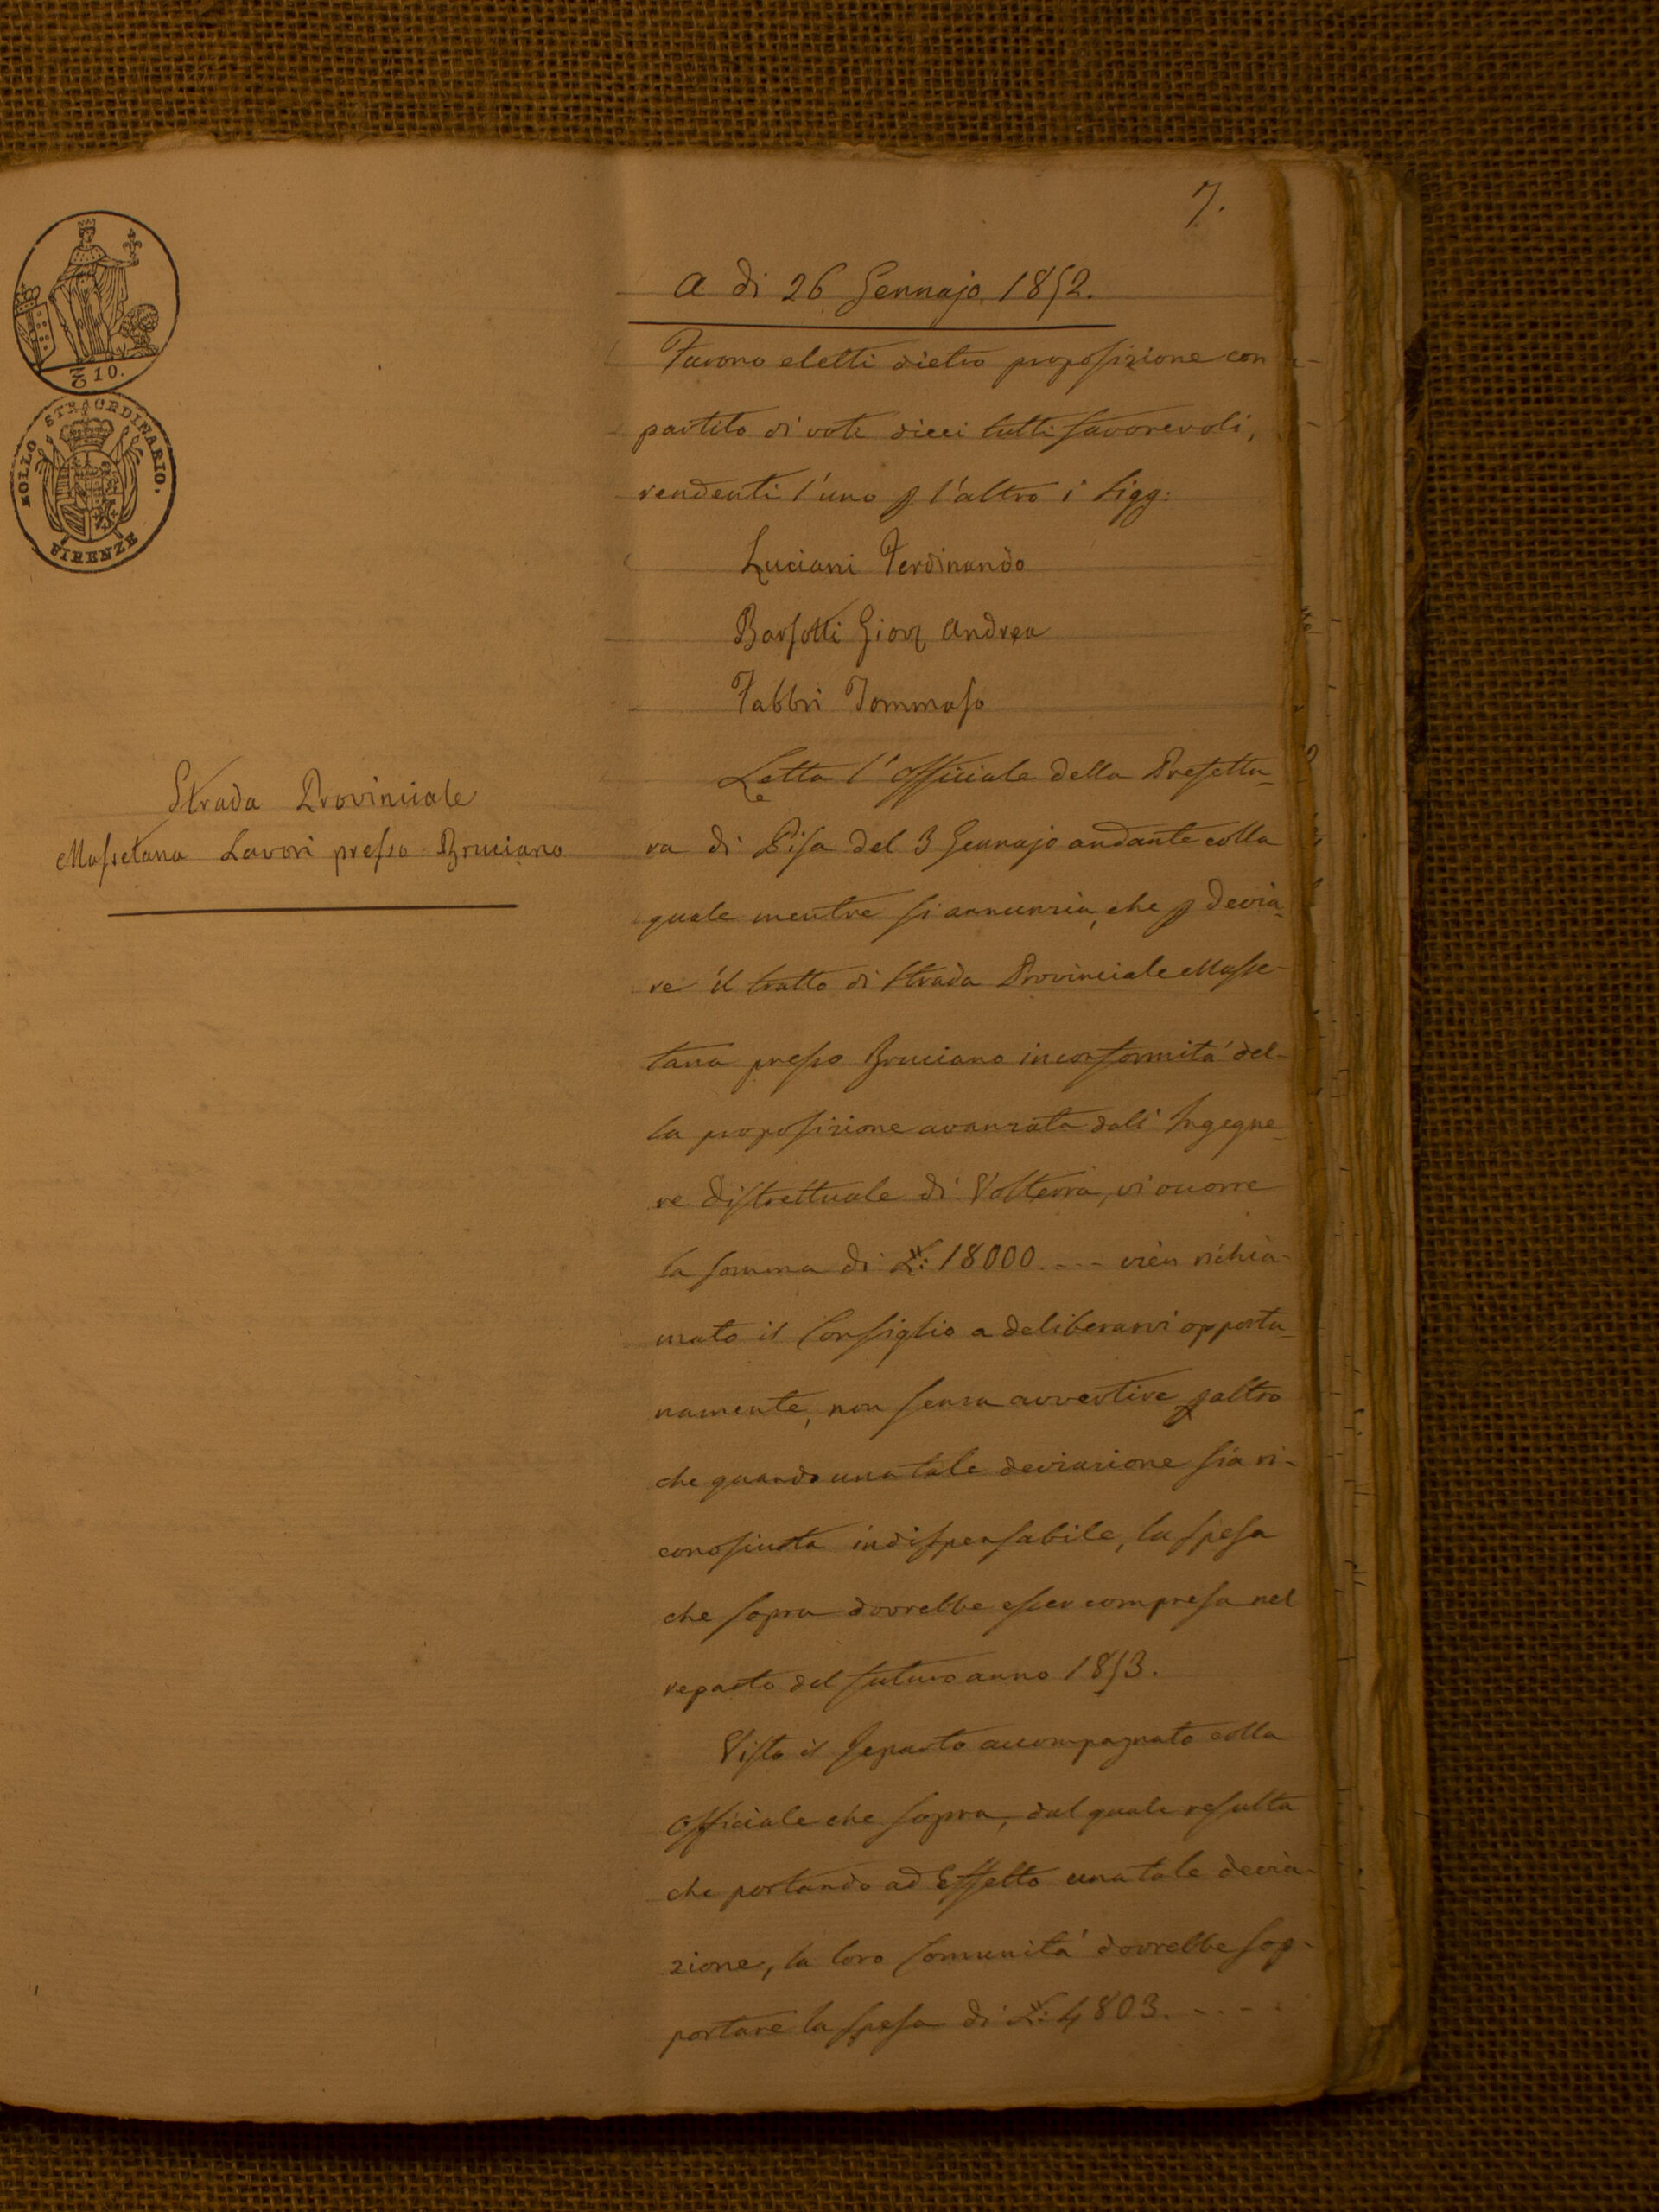 7.
A dì 26 Gennajo 1852.
Furono eletti dietro proposizione con
partito di voti dieci tutti favorevoli,
rendenti l'uno p l'altro i Sigg:
Luciani Ferdinando
Barsotti Giov Andrea
Fabbri Tommaso
Strada Provinciale
Massetana Lavori presso Bruciano
Letta l'Officiale della Prefettu-
ra di Pisa del 3 Gennajo andante colla
quale mentre si annunzia, che p devia-
re il tratto di Strada Provinciale Masse-
tana presso Bruciano in conformità del-
la proposizione avanzata dall' Ingegne-
re Distrettuale di Volterra, vi occorre
la somma di £: 18000.--- vien richia-
mato il Consiglio a deliberarvi opportu-
namente, non senza avvertire p altro
che quando una tale deviazione sia ri-
conosciuta indispensabile, la spesa
che sopra dovrebbe esser compresa nel
reparto del futuro anno 1853.
Visto il Reparto accompagnato colla
Officiale che sopra, dal quale resulta
che portando ad Effetto una tale devia-
zione, la loro Comunità dovrebbe sop-
portare la spesa di £: 4803.----
₶ 10.
BOLLO STRAORDINARIO.
FIRENZE